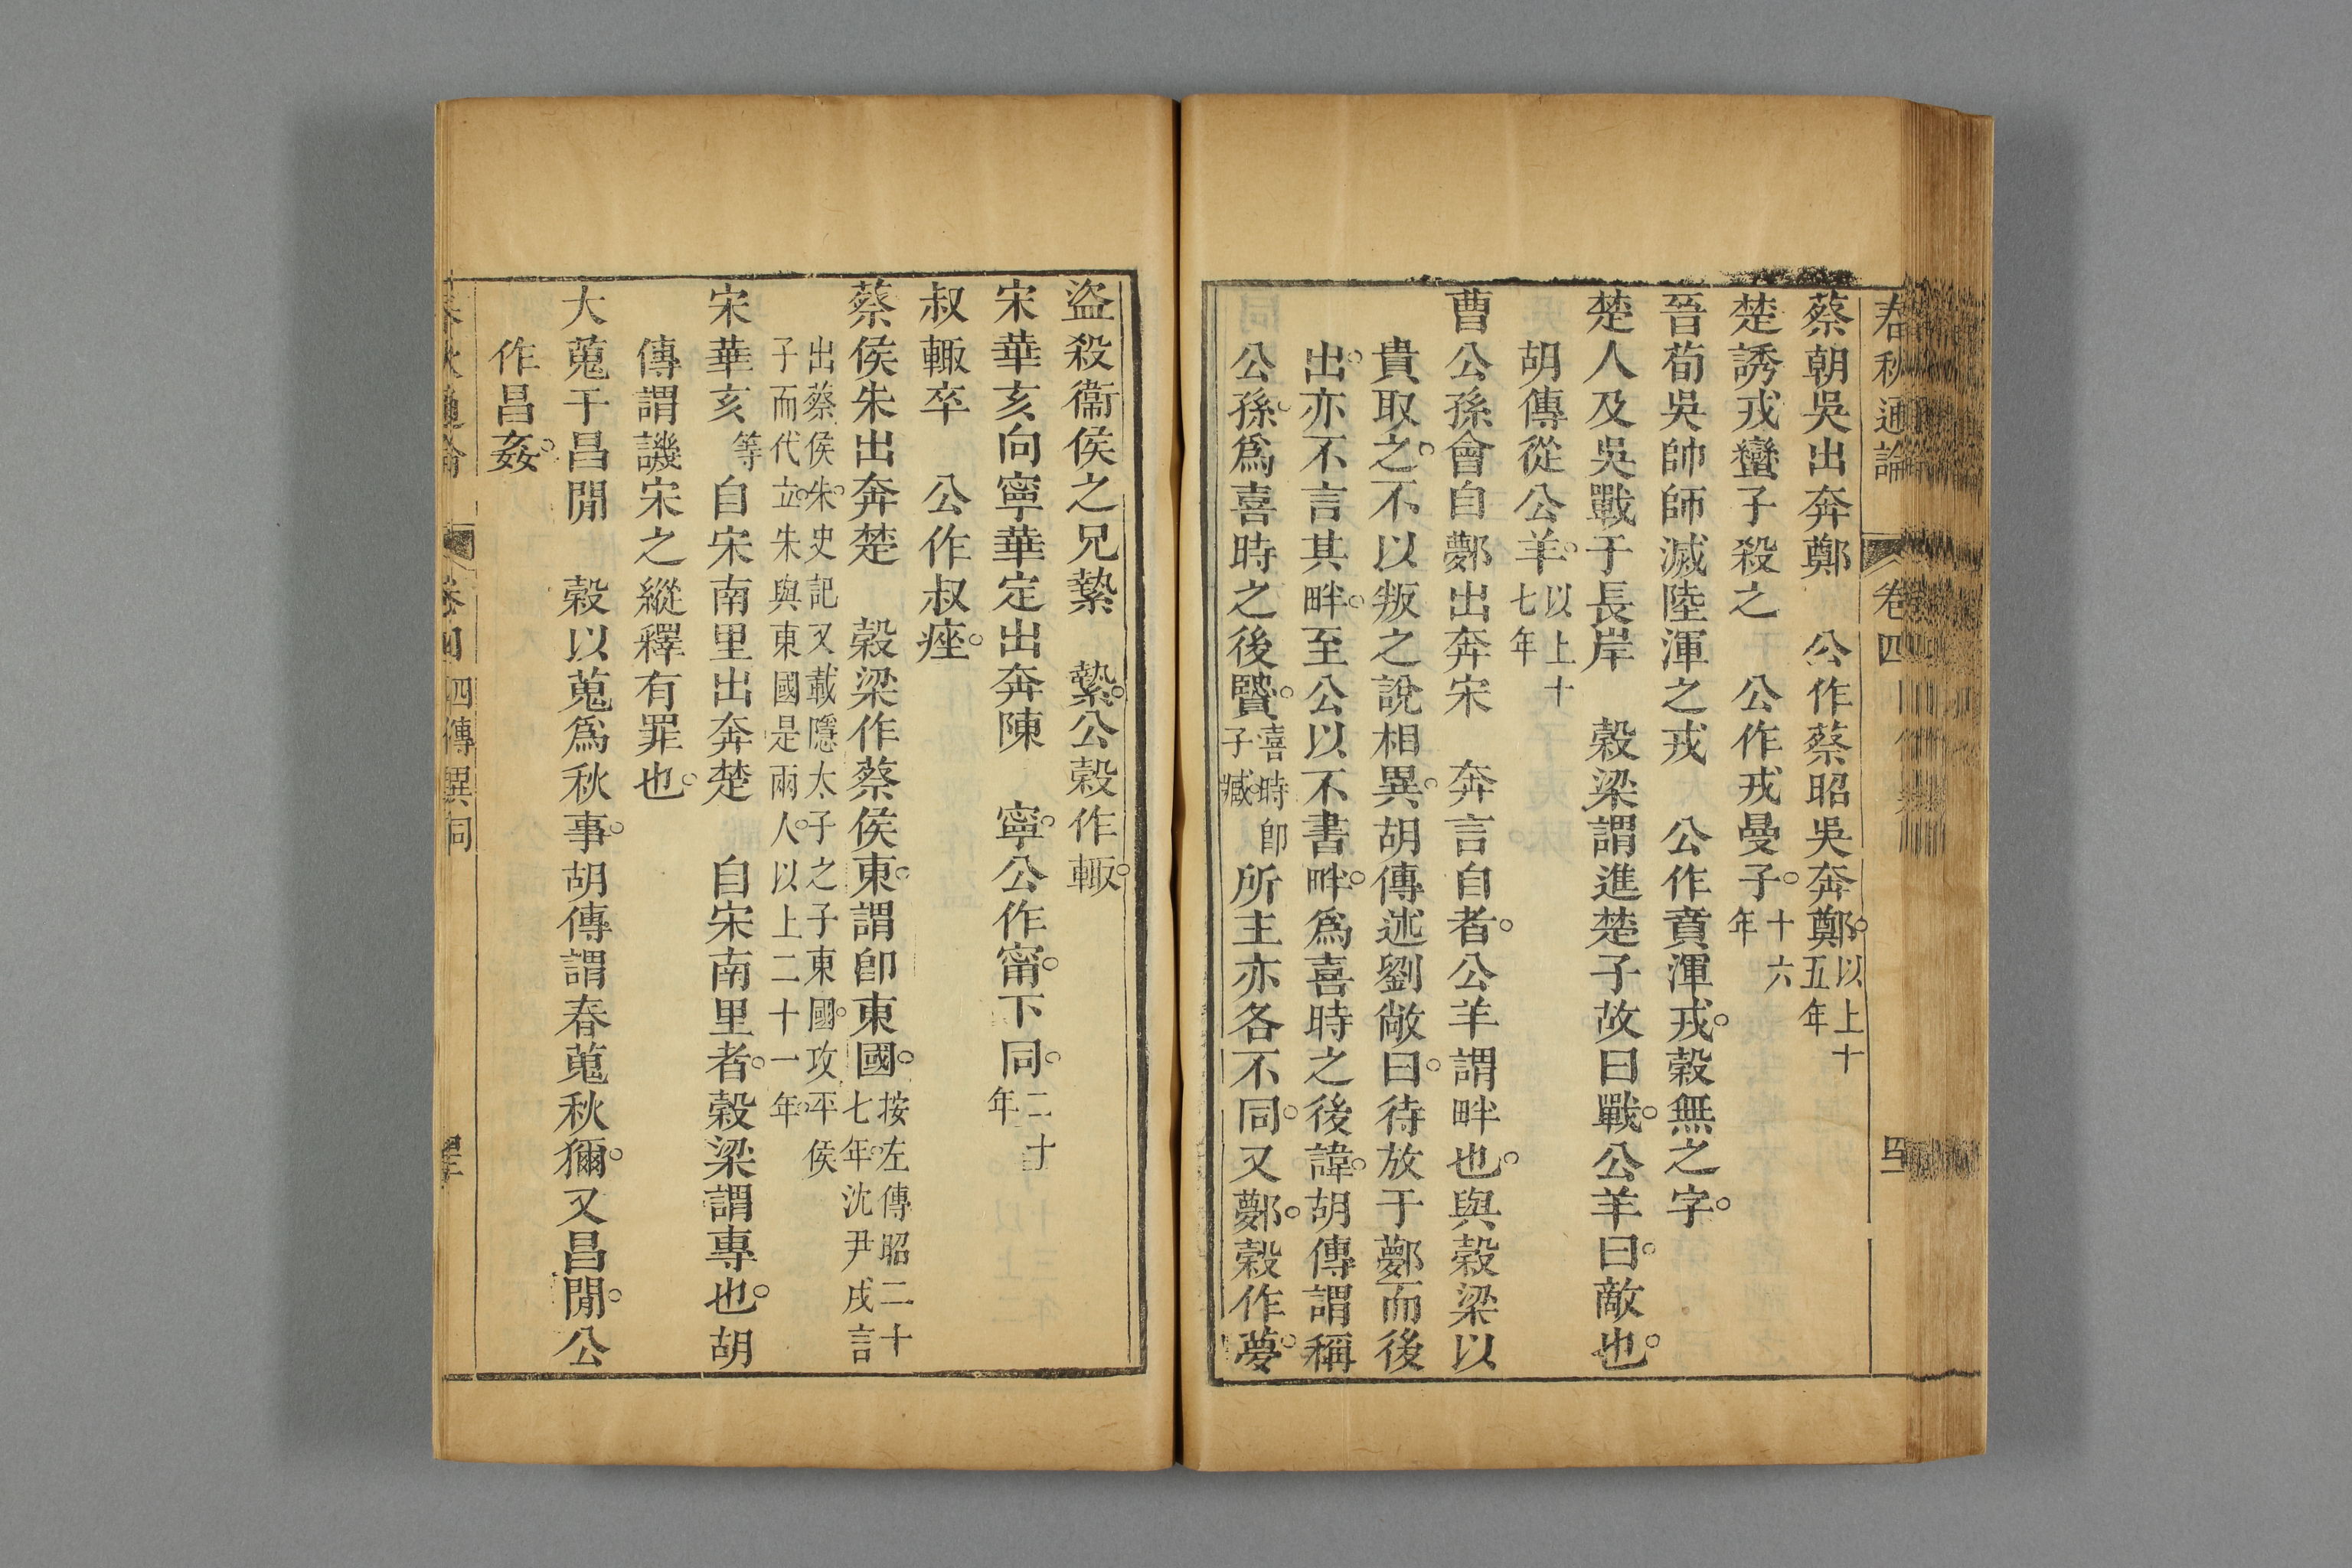 春秋通論 卷四
蔡朝吳出奔鄭 公作蔡昭吳奔鄭。以上十五年
楚誘戎蠻子殺之 公作戎曼子。十六年
晉荀吳帥師滅陸渾之戎 公作賁渾戎。穀無之字。
楚人及吳戰于長岸 穀梁謂進楚子故曰戰。公羊曰。敵也。
胡傳從公羊。以上十七年
曹公孫會自鄸出奔宋 奔言自者。公羊謂畔也。與穀梁以
貴取之。不以叛之說相異。胡傳述劉敞曰。待放于鄸而後
出。亦不言其畔。至公以不書畔。為喜時之後諱。胡傳謂稱
公孫。為喜時之後賢。喜時即子臧。所主亦各不同。又鄸。穀作夢。
盜殺衞侯之兄縶 縶。公穀作輙。
宋華亥向寧華定出奔陳 寧。公作甯。下同。二十年
叔輙卒 公作叔痤。
蔡侯朱出奔楚 穀梁作蔡侯東。謂即東國。按左傳昭二十七年。沈尹戌言
出蔡侯朱。史記又載隱太子之子東國。攻平侯
子而代立。朱與東國是兩人。以上二十一年。
宋華亥等自宋南里出奔楚 自宋南里者。穀梁謂專也。胡
傳謂譏宋之縱釋有罪也。
大蒐于昌閒 穀以蒐為秋事。胡傳謂春蒐秋獮。又昌閒。公
作昌姦。
春秋通論 卷四 四傳異同